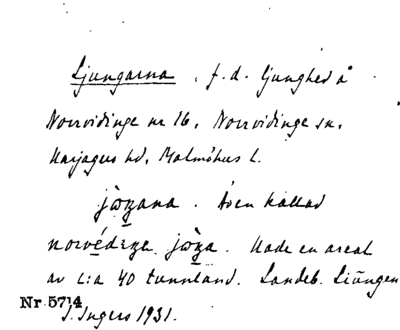 Ljungarna, f.d. ljunghed å
Norrvidinge nr 16, Norrvidinge sn,
Harjagers hd, Malmöhus l.
Även kallad
Hade en areal
av c:a 40 tunnland. Landeb. Liūngen
Nr 5714
I. Ingers 1931.